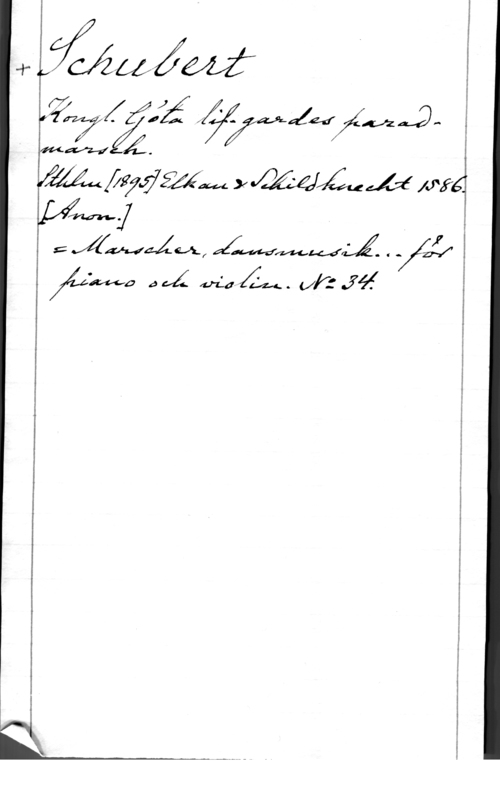 + Schubert
Kongl. Göta lif-gardes parad-
marsch.
Sthlm [1895] Elkan & Schildknecht 1586.
[Anon.]
= Marscher, dansmusik... för
piano och violin. No 34.